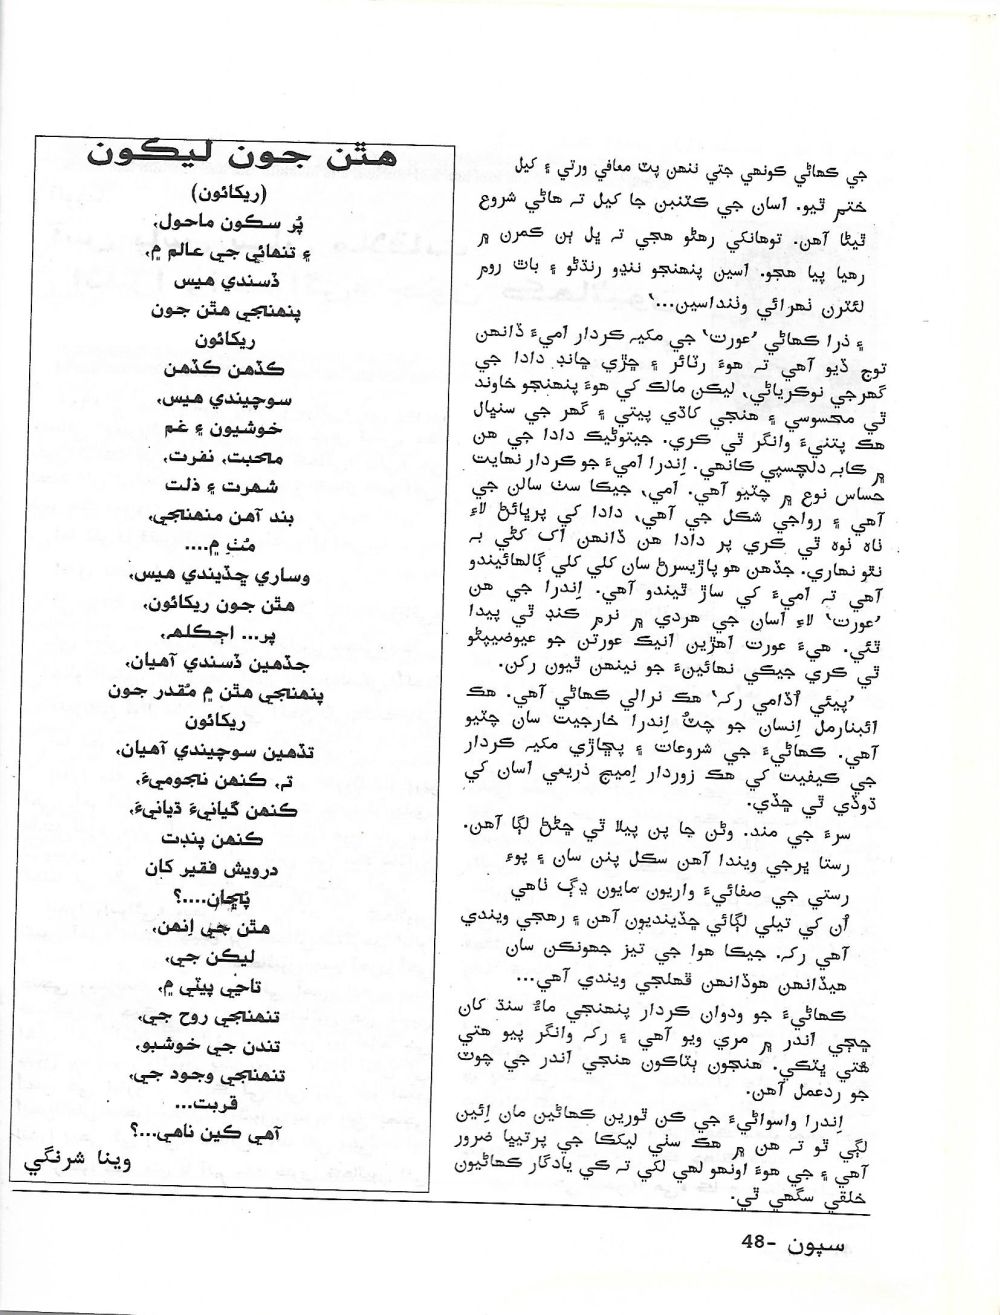 جي ڪهاڻي ڪونهي جتي ننهن پٽ معافي ورتي ۽ کيل
ختم ٿيو. اسان جي ڪٽنبن جا کيل تہ هاڻي شروع
ٿيڻا آهن. توهانکي رهڻو هجي تہ ڀل ٻن ڪمرن ۾
رهيا پيا هجو. اسين پنهنجو ننڍو رنڌڻو ۽ باٿ روم
لئٽرن ٺهرائي وٺنداسين...‘
۽ ذرا ڪهاڻي ’عورت‘ جي مکيہ ڪردار اميءَ ڏانهن
توج ڏيو آهي تہ هوءَ رٽائر ۽ ڇڙي ڇانڊ دادا جي
گهرجي نوڪرياڻي، ليڪن مالڪ کي هوءَ پنهنجو خاوند
ٿي محسوسي ۽ هنجي کاڌي پيتي ۽ گهر جي سنڀال
هڪ پتنيءَ وانگر ٿي ڪري. جيتوڻيڪ دادا جي هن
۾ ڪابہ دلچسپي ڪانهي. اِندرا اميءَ جو ڪردار نهايت
حساس نوع ۾ چٽيو آهي. امي، جيڪا سٺ سالن جي
آهي ۽ رواجي شڪل جي آهي، دادا کي پرڀائڻ لاءِ
ٺاھ ٺوھ ٿي ڪري پر دادا هن ڏانهن اک کڻي بہ
نٿو نهاري. جڏهن هو پاڙيسرڻ سان کلي کلي ڳالهائيندو
آهي تہ اميءَ کي ساڙ ٿيندو آهي. اِندرا جي هن
’عورت‘ لاءِ اسان جي هردي ۾ نرم ڪنڊ ٿي پيدا
ٿئي. هيءَ عورت اهڙين انيڪ عورتن جو عيوضيپڻو
ٿي ڪري جيڪي نهائينءَ جو نينهن ٿيون رکن.
’پيٽي اُڏامي رکہ‘ هڪ نرالي ڪهاڻي آهي. هڪ
ائبنارمل اِنسان جو چٽُ اِندرا خارجيت سان چٽيو
آهي. ڪهاڻيءَ جي شروعات ۽ پڇاڙي مکيہ ڪردار
جي ڪيفيت کي هڪ زوردار اِميج ذريعي اسان کي
ڌوڏي ٿي ڇڏي.
سرءَ جي مند. وڻن جا پن پيلا ٿي ڇڻڻ لڳا آهن.
رستا ڀرجي ويندا آهن سڪل پنن سان ۽ پوءِ
رستي جي صفائيءَ واريون مايون ڍڳ ٺاهي
اُن کي تيلي لڳائي ڇڏينديون آهن ۽ رهجي ويندي
آهي رکہ. جيڪا هوا جي تيز جهونڪن سان
هيڏانهن هوڏانهن ڦهلجي ويندي آهي...
ڪهاڻيءَ جو ودوان ڪردار پنهنجي ماءُ سنڌ کان
ڇڄي اندر ۾ مري ويو آهي ۽ رکہ وانگر پيو هتي
هتي ڀٽڪي. هنجون ٻٽاڪون هنجي اندر جي چوٽ
جو ردعمل آهن.
اِندرا واسواڻيءَ جي ڪن ٿورين ڪهاڻين مان اِئين
لڳي ٿو تہ هن ۾ هڪ سٺي ليکڪا جي پرتيڀا ضرور
آهي ۽ جي هوءَ اونهو لهي لکي تہ ڪي يادگار ڪهاڻيون
خلقي سگهي ٿي.
هٿن جون ليڪون
(ريکائون)
پُر سڪون ماحول،
۽ تنهائي جي عالم ۾،
ڏسندي هيس
پنهنجي هٿن جون
ريکائون
ڪڏهن ڪڏهن
سوچيندي هيس،
خوشيون ۽ غم
محبت، نفرت،
شهرت ۽ ذلت
بند آهن منهنجي،
مُٺ ۾....
وساري ڇڏيندي هيس،
هٿن جون ريکائون،
پر... اڄڪلهہ،
جڏهين ڏسندي آهيان،
پنهنجي هٿن ۾ مُقدر جون
ريکائون
تڏهين سوچيندي آهيان،
تہ، ڪنهن نجوميءَ،
ڪنهن گيانيءَ ڌيانيءَ،
ڪنهن پنڊت
درويش فقير کان
پُڇان....؟
هٿن جي اِنهن،
ليڪن جي،
تاڃي پيٽي ۾،
تنهنجي روح جي،
تندن جي خوشبو،
تنهنجي وجود جي،
قربت...
آهي ڪين ناهي...؟
وينا شرنگي
سپون -48